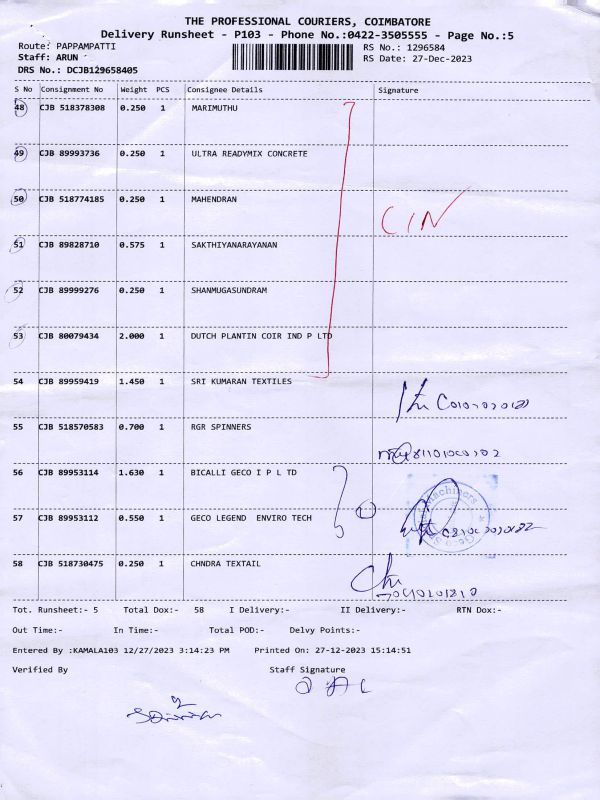 THE PROFESSIONAL COURIERS, COIMBATORE
Delivery Runsheet - P103 - Phone No.:0422-3505555 - Page No.:5
Route: PAPPAMPATTI
RS No.: 1296584
Staff: ARUN
RS Date: 27-Dec-2023
DRS No.: DCJB129658405
S No Consignment No Weight PCS Consignee Details Signature
48 CJB 518378308 0.250 1 MARIMUTHU
49 CJB 89993736 0.250 1 ULTRA READYMIX CONCRETE
50 CJB 518774185 0.250 1 MAHENDRAN
CIN
51 CJB 89828710 0.575 1 SAKTHIYANARAYANAN
52 CJB 89999276 0.250 1 SHANMUGASUNDRAM
53 CJB 80079434 2.000 1 DUTCH PLANTIN COIR IND P LTD
54 CJB 89959419 1.450 1 SRI KUMARAN TEXTILES
55 CJB 518570583 0.700 1 RGR SPINNERS
56 CJB 89953114 1.630 1 BICALLI GECO I P L TD
57 CJB 89953112 0.550 1 GECO LEGEND ENVIRO TECH
58 CJB 518730475 0.250 1 CHNDRA TEXTAIL
Tot. Runsheet:- 5 Total Dox:- 58 I Delivery:- II Delivery:- RTN Dox:-
Out Time:- In Time:- Total POD:- Delvy Points:-
Entered By :KAMALA103 12/27/2023 3:14:23 PM Printed On: 27-12-2023 15:14:51
Verified By Staff Signature